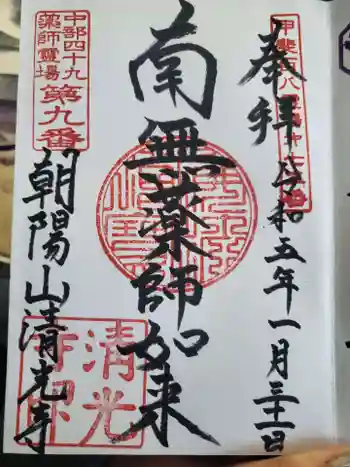 奉拝 令和五年一月三十一日
南無薬師如来
中部四十九
薬師霊場
第九番
朝陽山清光寺
清光
寺印